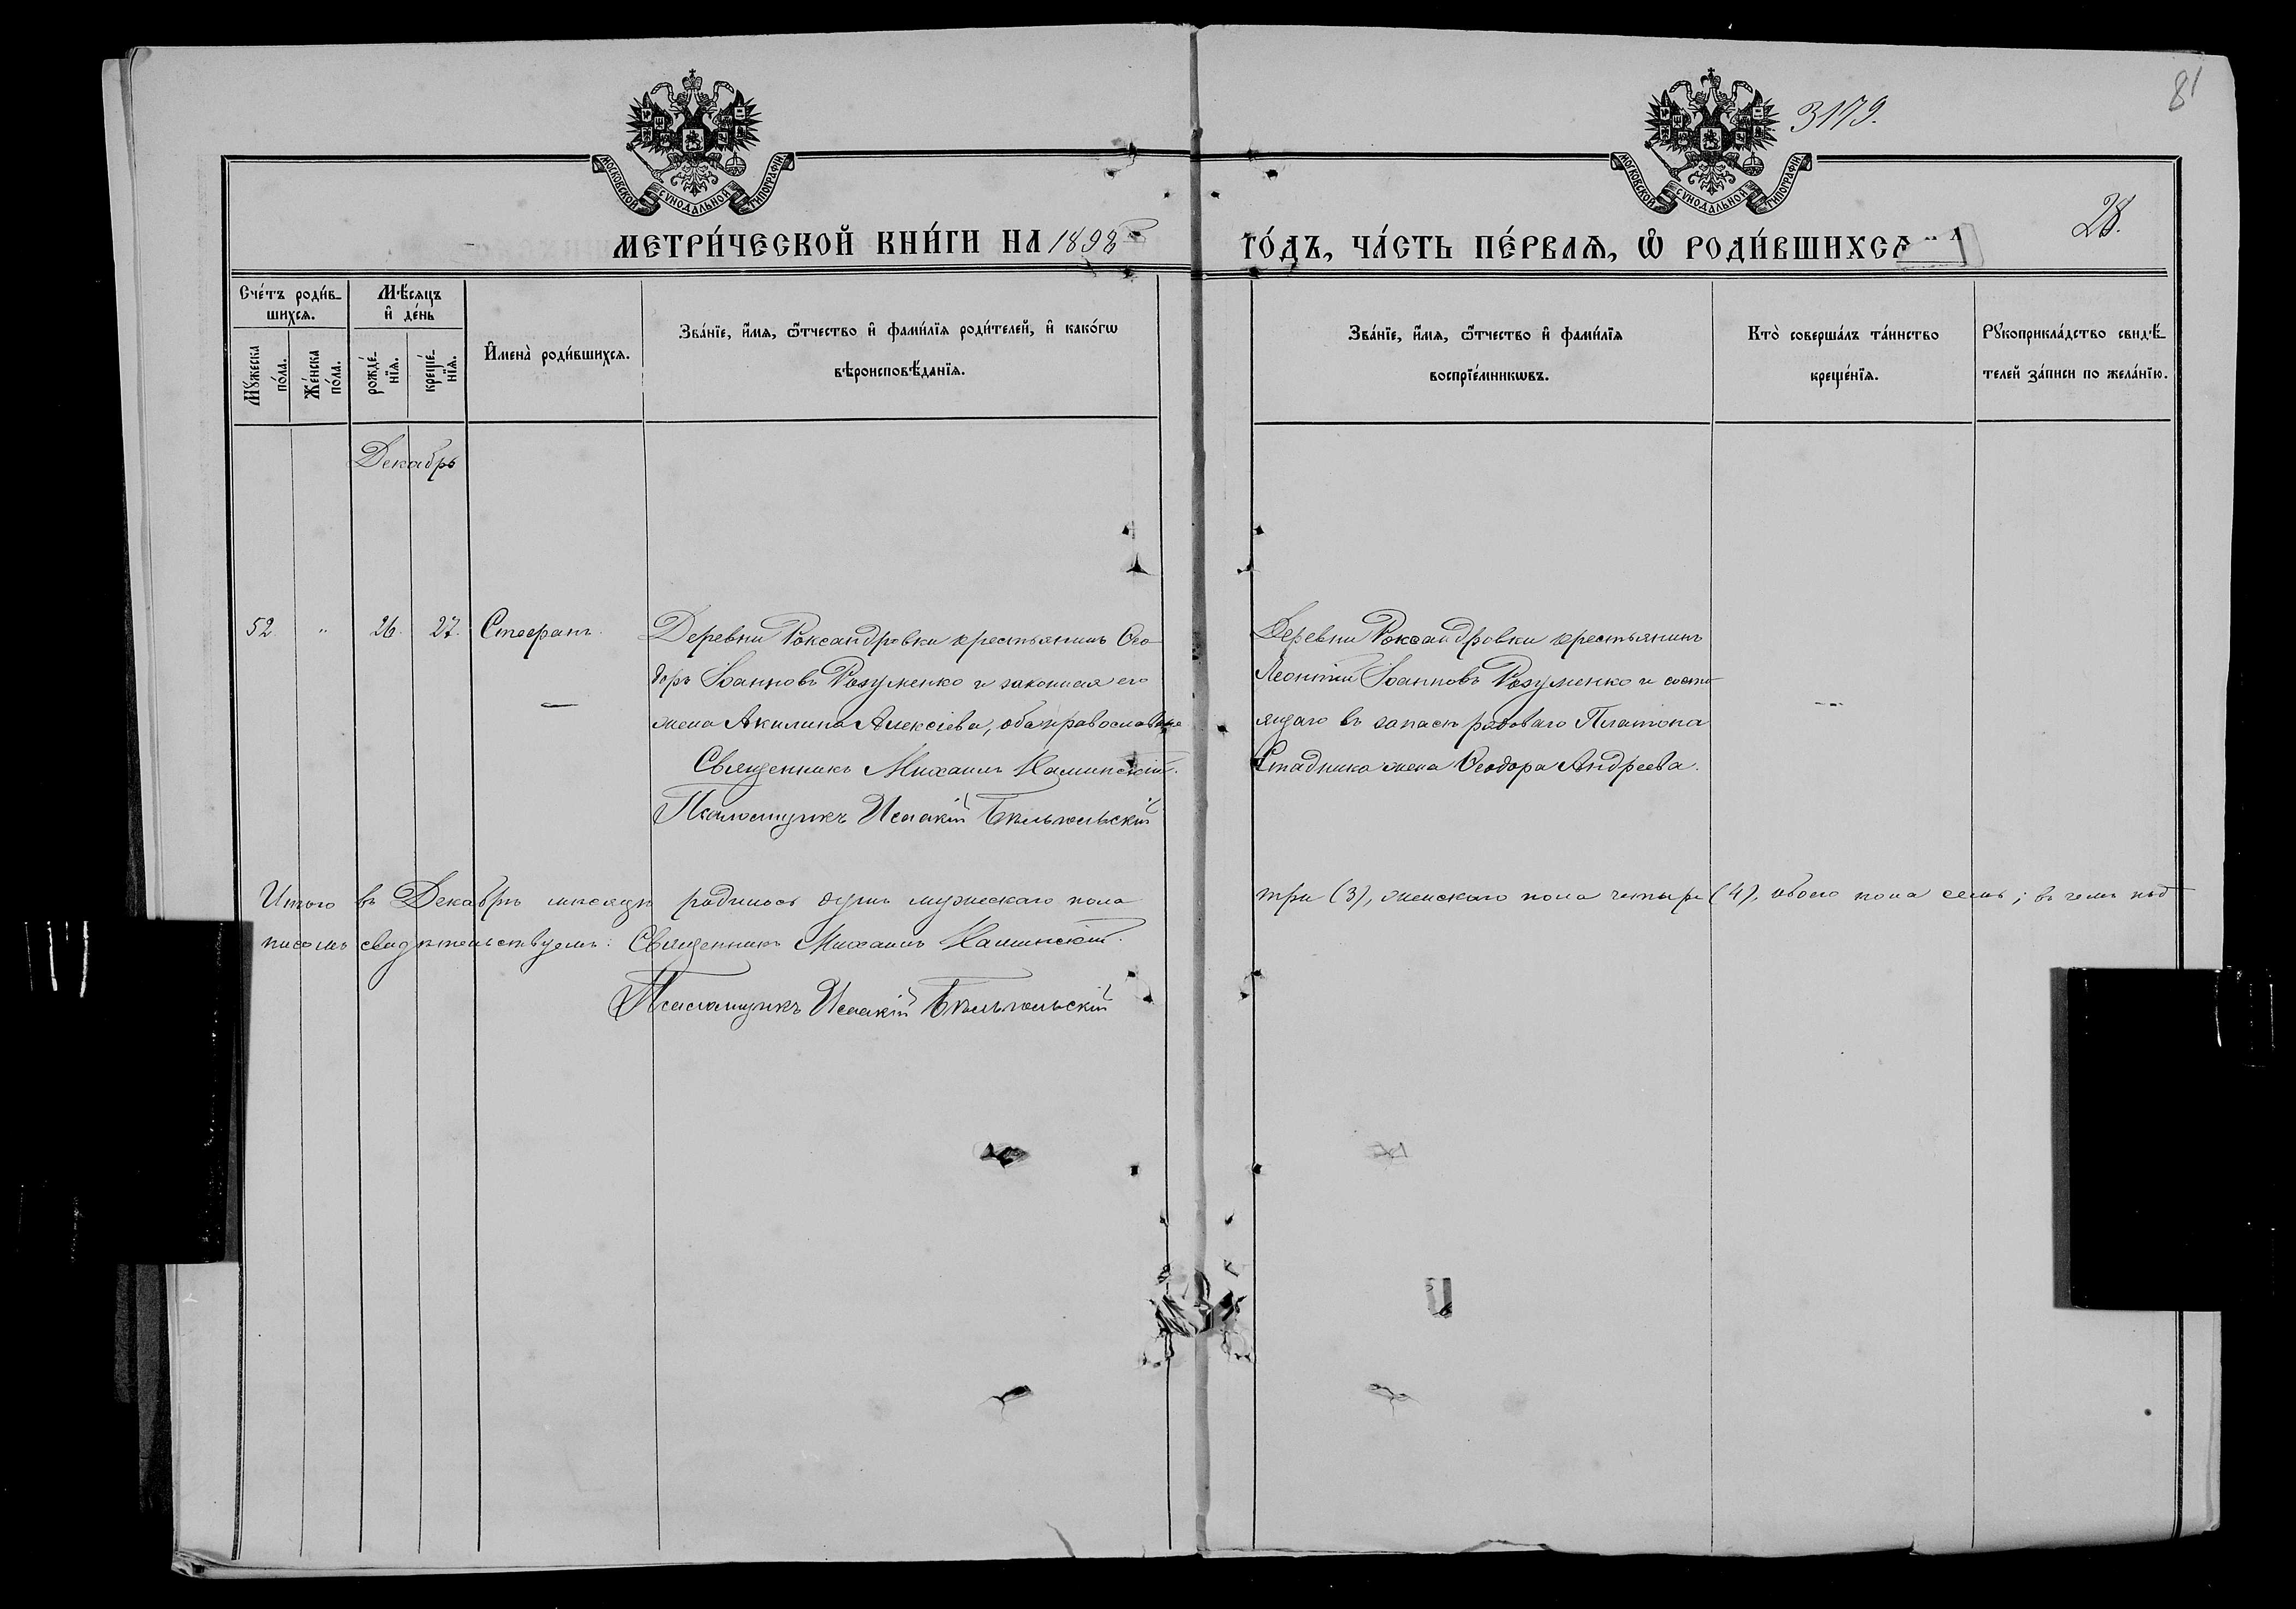 81
3179.
МОСКОВСКОЙ СѴНОДАЛЬНОЙ ТИПОГРАФІИ
МОСКОВСКОЙ СѴНОДАЛЬНОЙ ТИПОГРАФІИ
28.
МЕТРИ́ЧЕСКОЙ КНИ́ГИ НА 1898
ГО́ДЪ, ЧА́СТЬ ПЕ́РВАѦ, Ѽ РОДИ́ВШИХСѦ
Сче́тъ роди́в-
шихсѧ.
Мѣ́сѧцъ
и҆ де́нь
Мꙋ́жеска
по́ла.
Же́нска
по́ла.
рожде́-
нїѧ.
креще́-
нїѧ.
И҆мена̀ роди́вшихсѧ.
Зва́нїе, и҆́мѧ, ѻ҆́тчество и҆ фами́лїѧ роди́телей, и҆ како́гѡ
вѣроисповѣ́данїѧ.
Зва́нїе, и҆́мѧ, ѻ҆́тчество и҆ фами́лїѧ
воспрїе́мникѡвъ.
Кто̀ соверша́лъ та́инство
креще́нїѧ.
Рꙋкоприкла́дство свидѣ́-
телей за́писи по жела́нїю.
Декабрь
52. " 26. 27. Стефанъ.
Деревни Роксандровки крестьянинъ Ѳео
доръ Іоанновъ Розуменко и законная его
жена Акилина Алексіева, оба православные
Священникъ Михаилъ Калинскій.
Псаломщикъ Исаакій Бѣльпольскій
Деревни Роксандровки крестьянинъ
Леонтій Іоанновъ Розуменко и состо
ящаго въ запасѣ рядоваго Платона
Стадника жена Ѳеодора Андреева.
Итого въ Декабрѣ мѣсяцѣ родилось душъ мужескаго пола три (3), женскаго пола четыре (4), обоего пола семь; въ чемъ под
писомъ свидѣтельствуемъ: Священникъ Михаилъ Калинскій.
Псаломщикъ Исаакій Бѣльпольскій